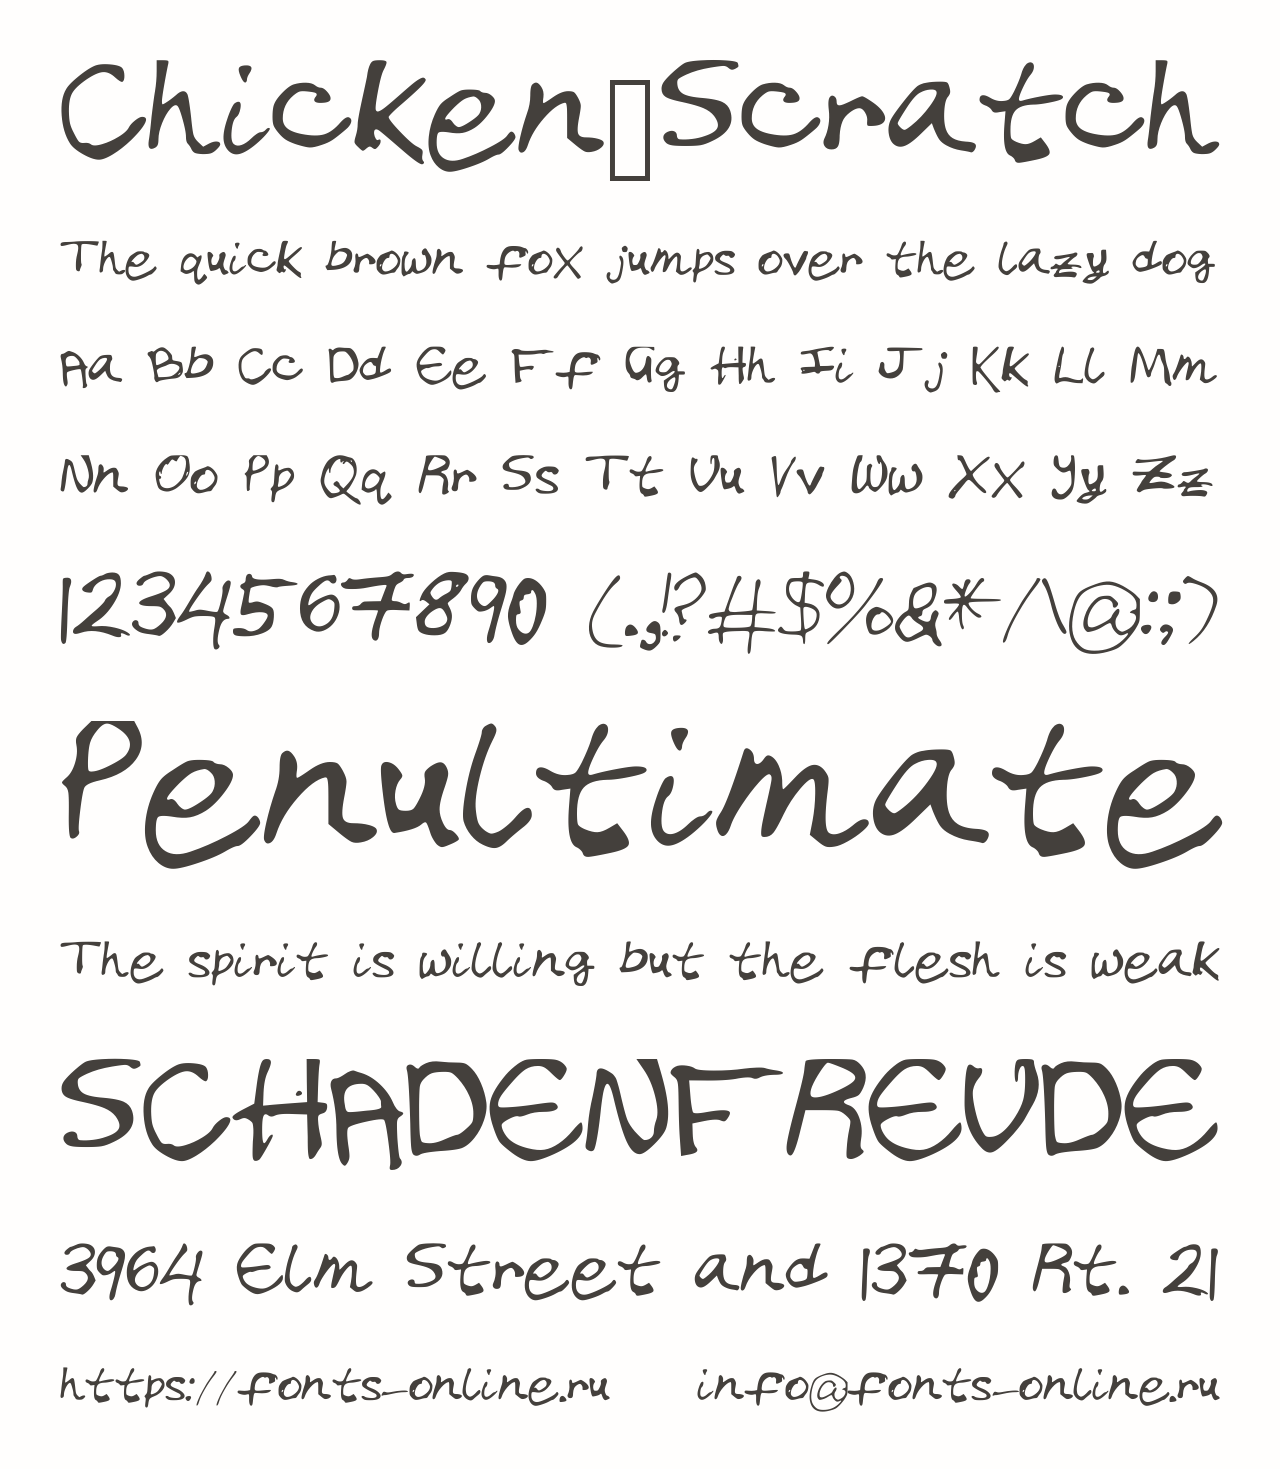 Chicken▯Scratch
The quick brown fox jumps over the lazy dog
Aa Bb Cc Dd Ee Ff Gg Hh Ii Jj Kk Ll Mm
Nn Oo Pp Qq Rr Ss Tt Uu Vv Ww Xx Yy Zz
1234567890 (.,!?#$%&*/\@:;)
Penultimate
The spirit is willing but the flesh is weak
SCHADENFREUDE
3964 Elm Street and 1370 Rt. 21
https://fonts-online.ru info@fonts-online.ru